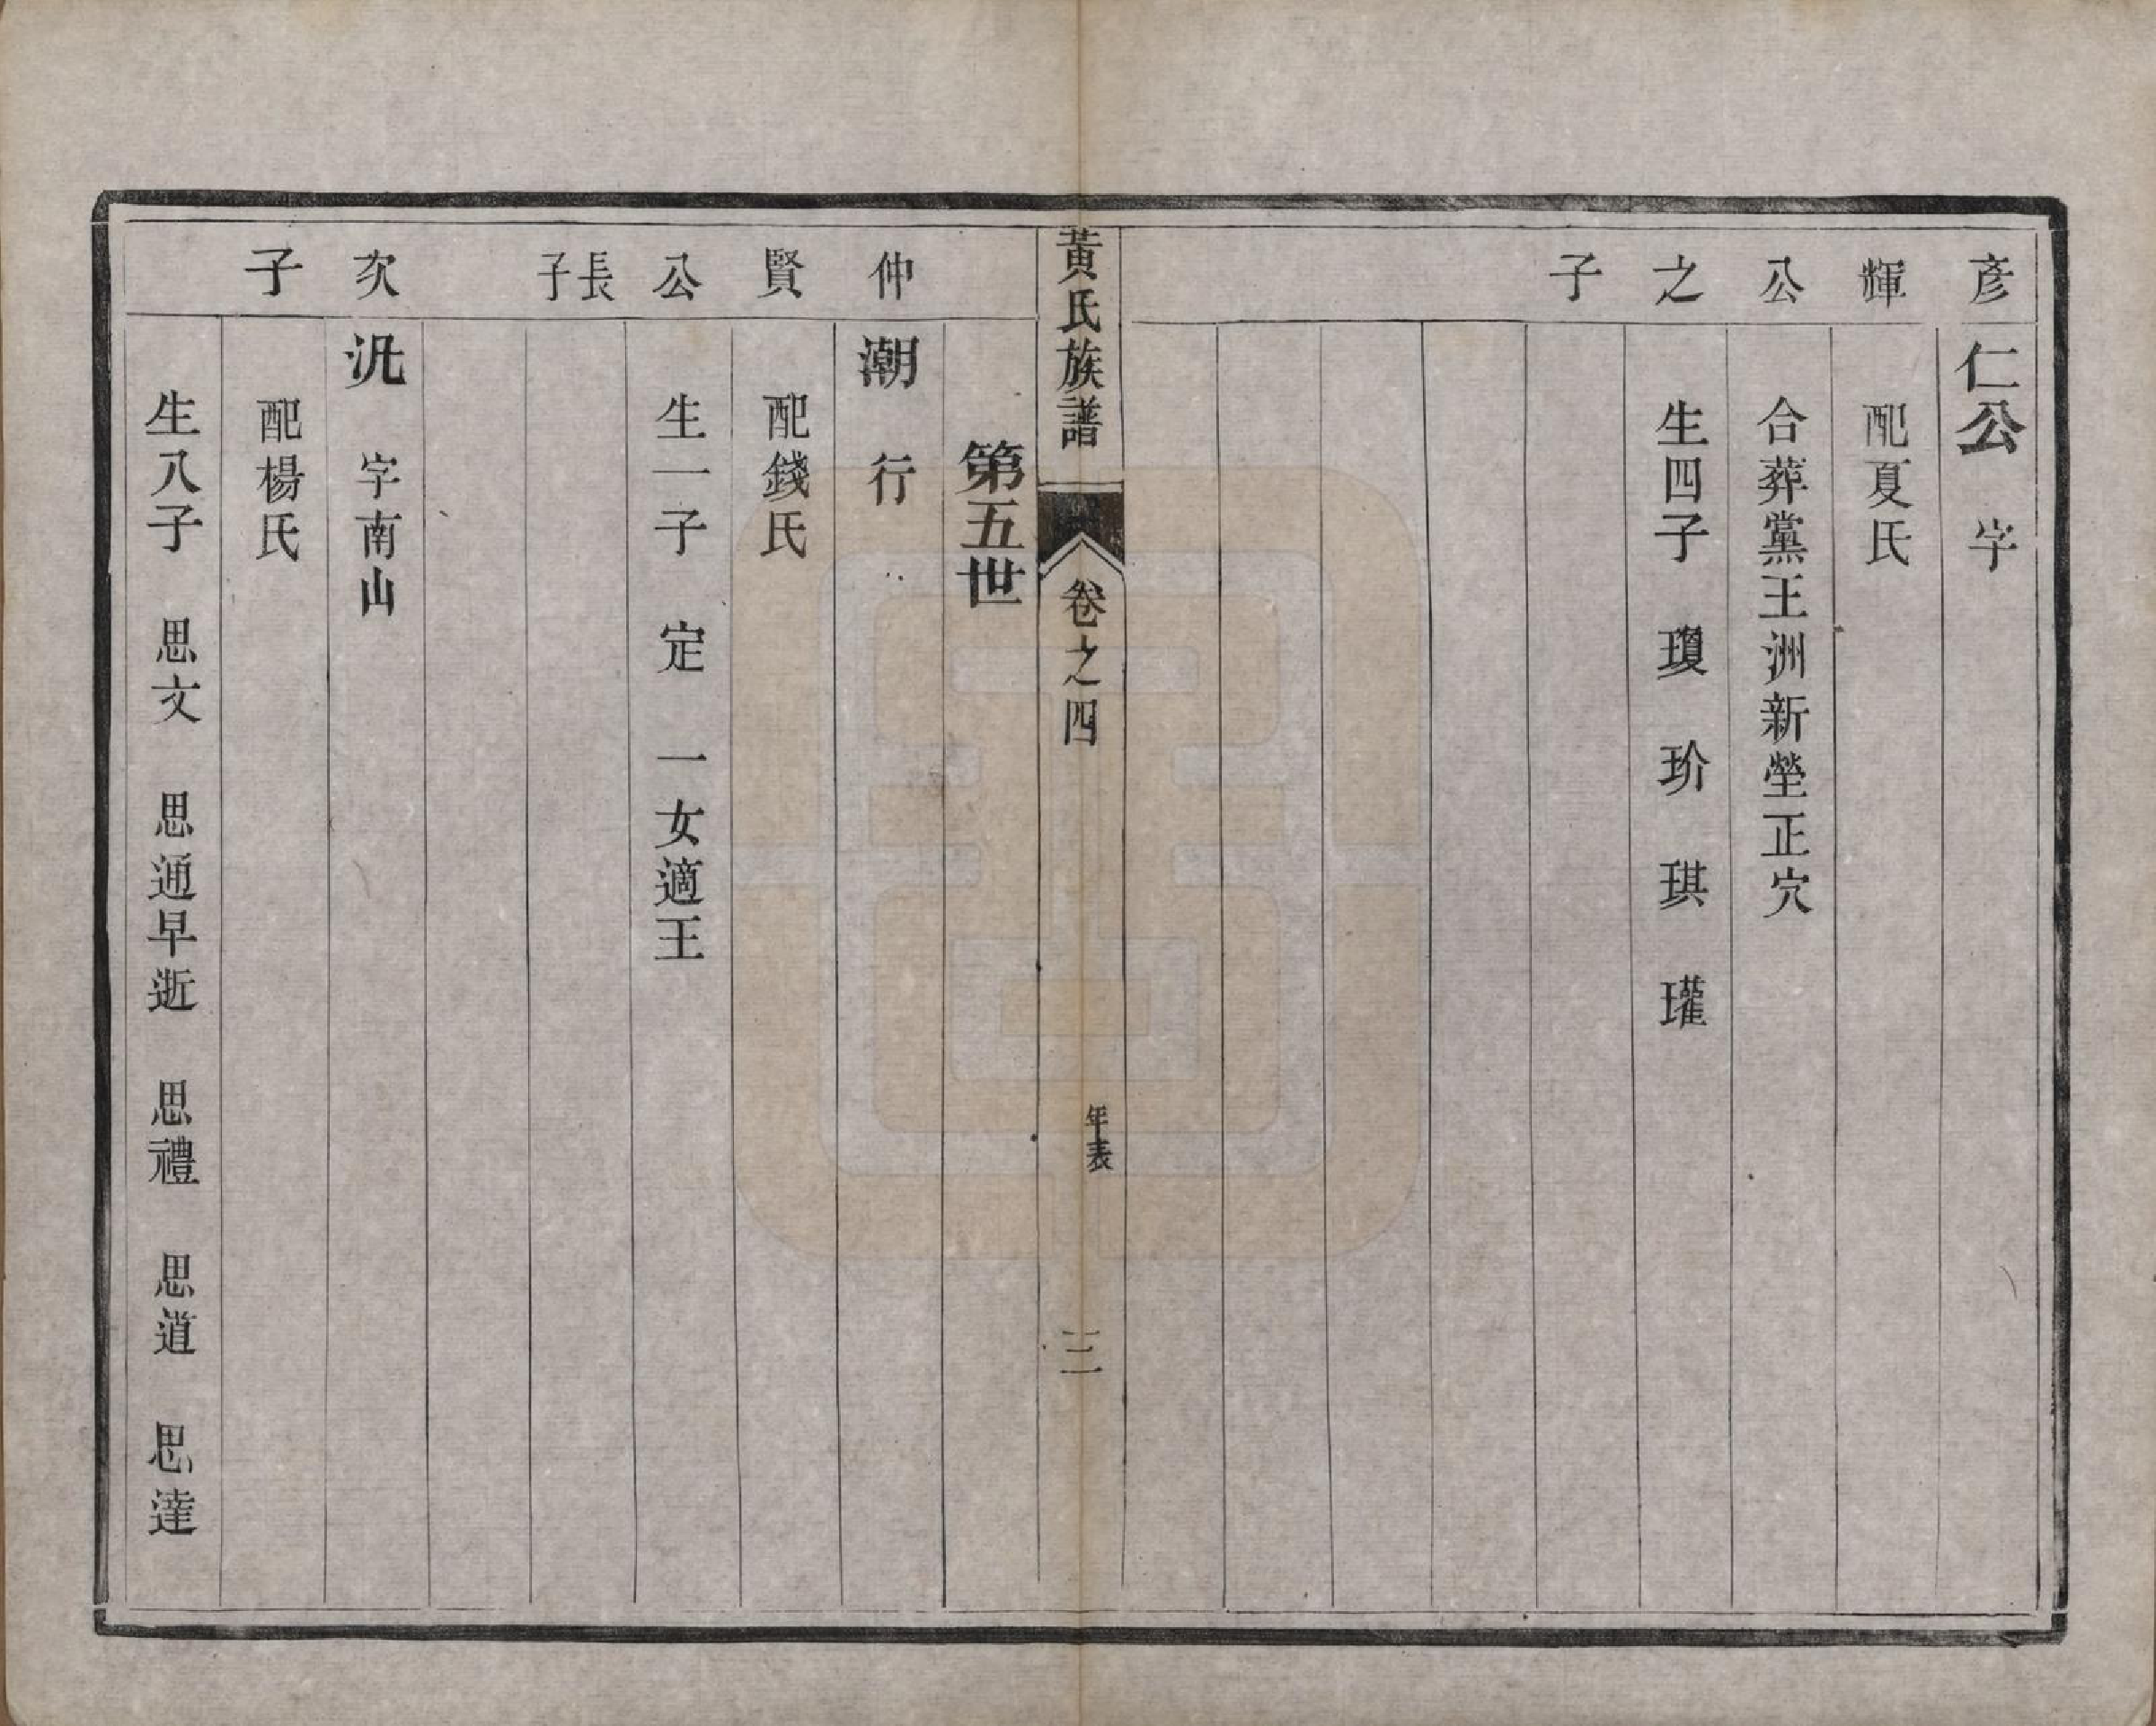 彥輝公之子
仁公　字
配夏氏
合葬黨王洲新塋正穴
生四子　瓊　玠　琪　瓘
黃氏族譜　卷之四　年表　三
第五世
仲賢公長子
潮　行
配錢氏
生一子　定　一女適王
次子
汎　字南山
配楊氏
生八子　思文　思通早逝　思禮　思道　思達